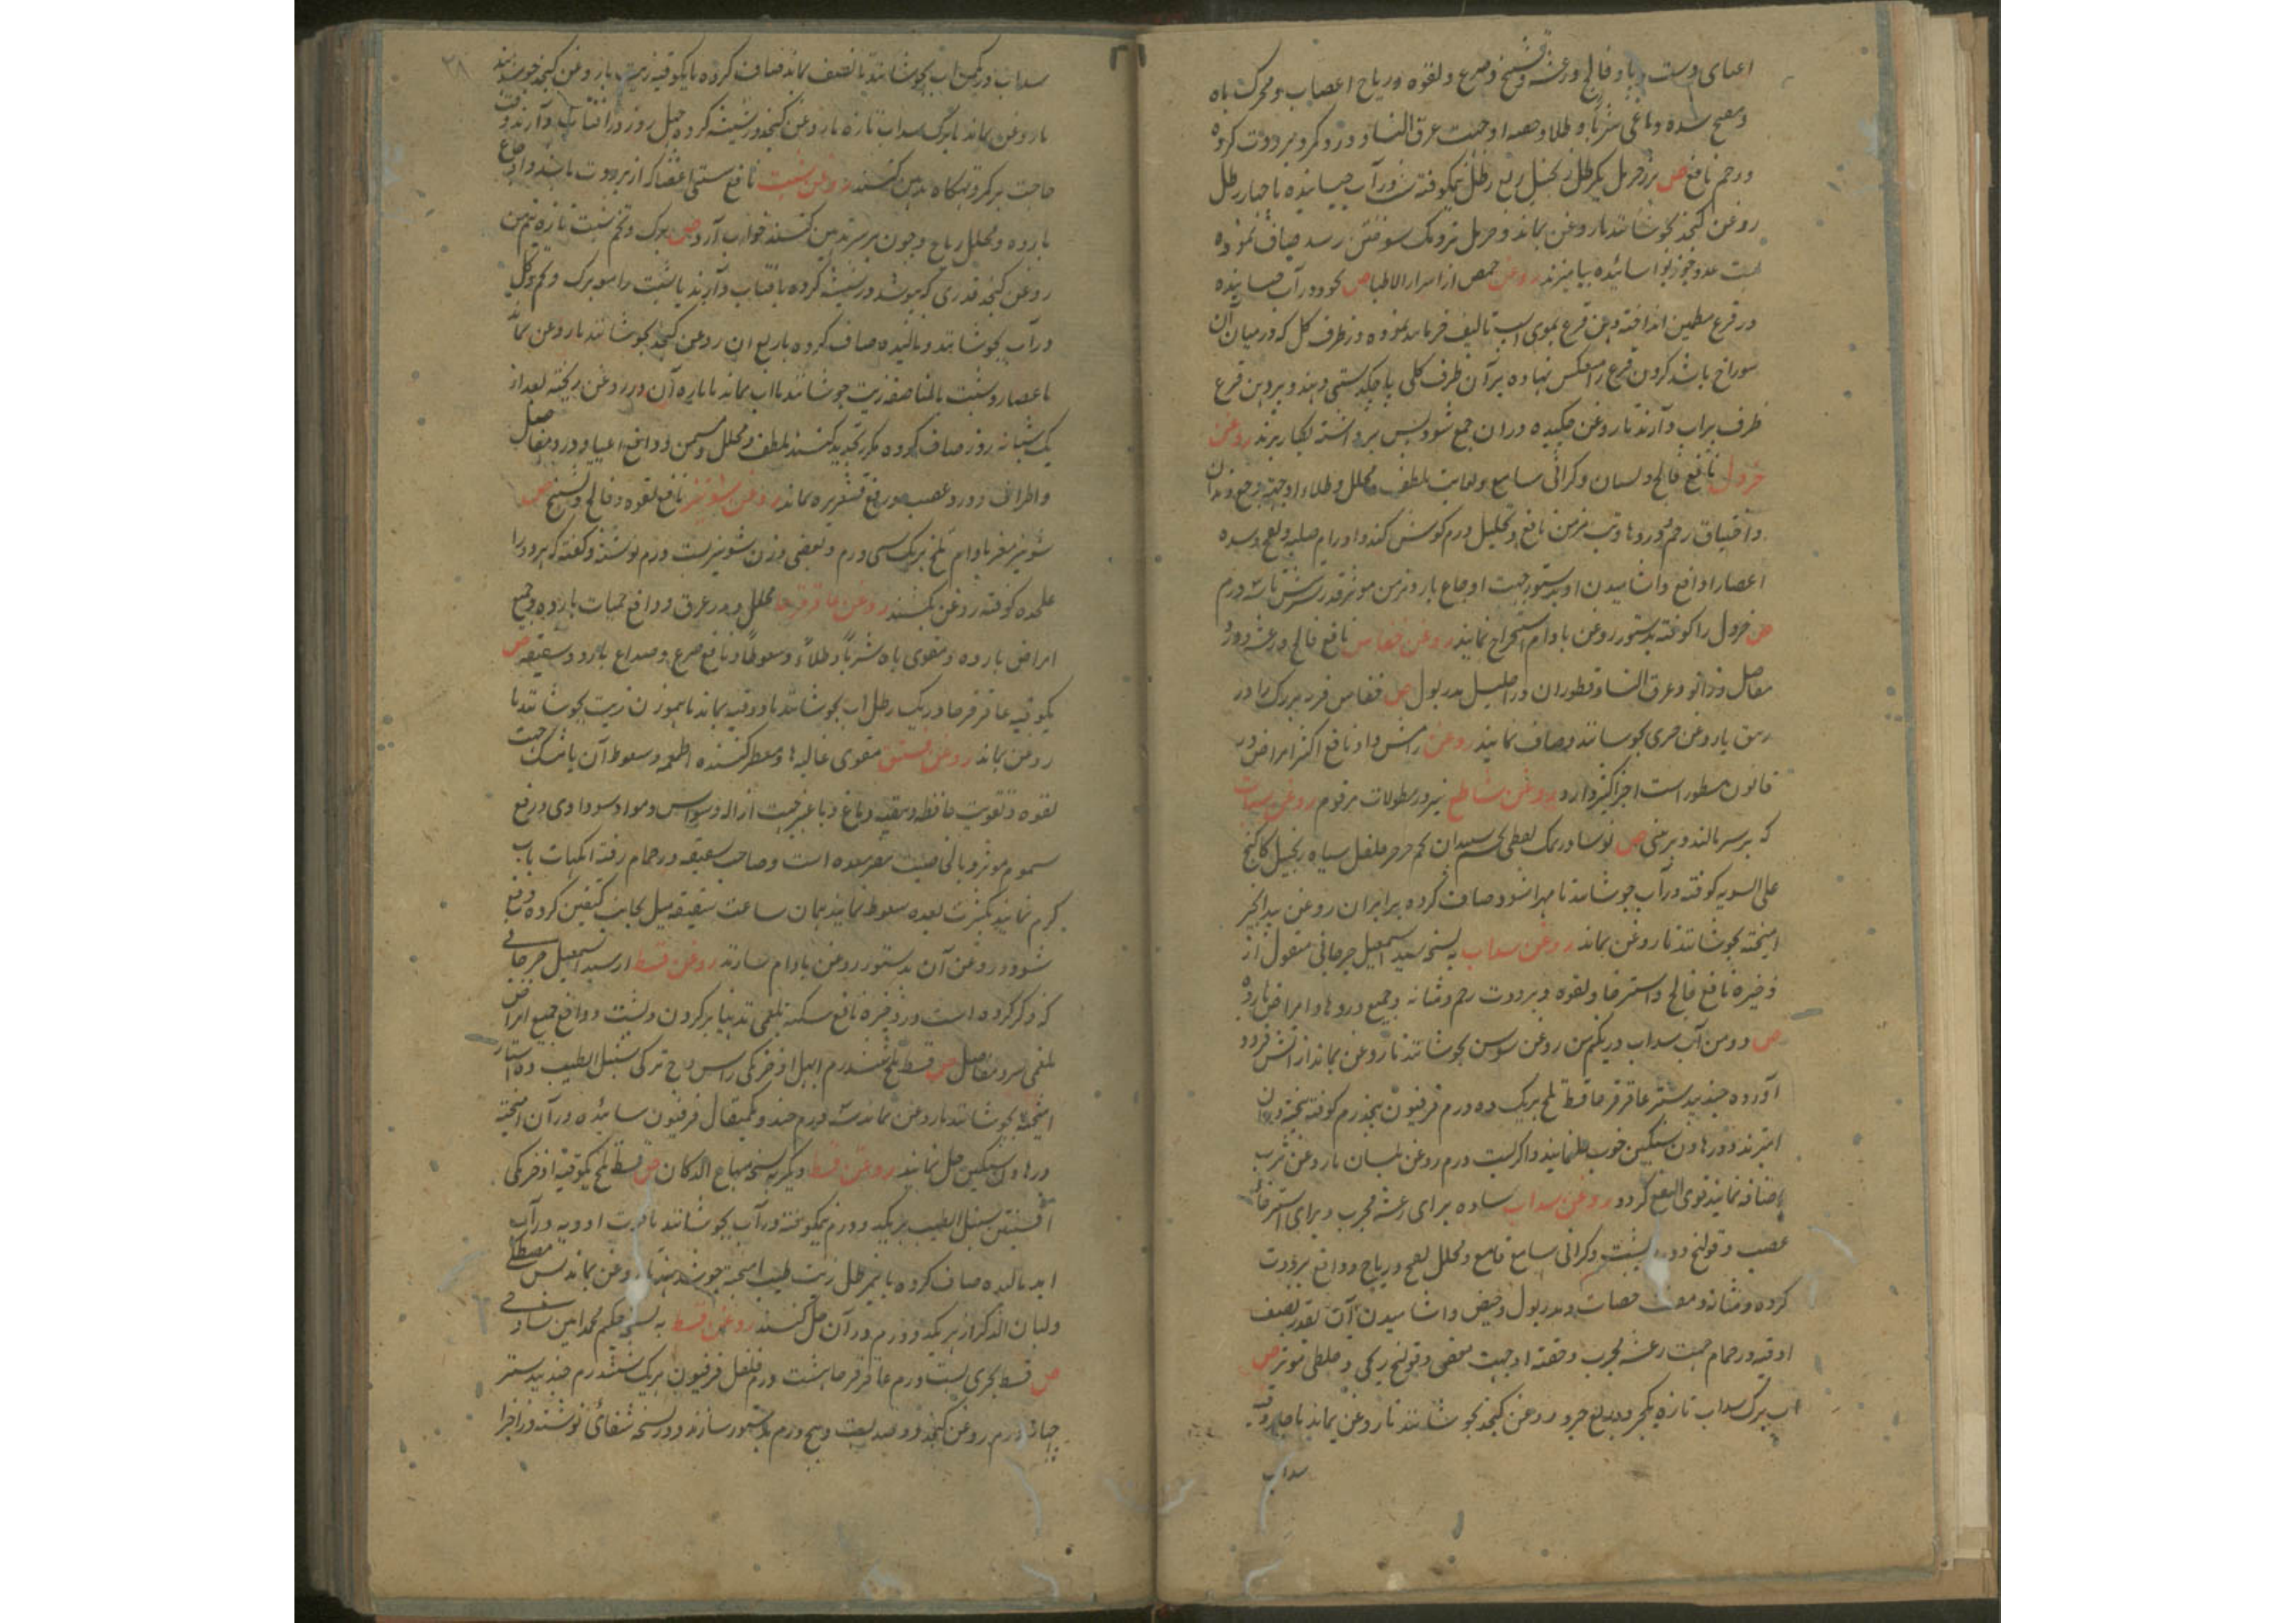 اعیای دست و پا و فالج و رعشه و تشنج و صرع و لقوه و ریاح اعصاب و محرک باه
و مفتح سده دماغی شرباً و طلاءً و حقنه او جهت عرق النسا و درد کمر و برودت کرده
و رحم نافع ص بزر حرمل یکرطل زنجبیل ربع رطل نیمکوفته در آب خیسانیده با چهار رطل
روغن کنجد بجوشانند تا روغن بماند و حرمل نزدیک سوختن رسد صاف نموده
عدد جوز بوا سائیده بیامیزند روغن حمص از اسرار الاطبا ص نخود در آب خیسانیده
در قرع مطین انداخته دهن قرع بموی اسپ یا لیف خرما بند نموده و ظرف کل که در میان آن
سوراخ باشد کردن قرع را معکس نهاده بر آن ظرف کلی پاچکدستی دهند و بر دهن قرع
ظرف پر آب دارند تا روغن چکیده در آن جمع شود پس برداشته بکار برند روغن
خردل نافع فالج و لسان و کرانی سامع و بغایت ملطف محلل و طلاء او جهت وجع دندان
و اختناق رحم و دردها و تب مزمن نافع و تحلیل ورم کوش کند و اورام صلبه و سده
اعصار ادافع و آشامیدن او بدستور جهت اوجاع بارد مزمن موثر قدر شربتش تا سه درم
ص خردل را کوفته بدستور روغن بادام استخراج نمایند روغن خفاش نافع فالج و رعشه و درد
مفاصل و زانو و عرق النسا و قطور آن در احلیل مدر بول ص خفاش فربه بزرک را در
زیبق با روغن خیری بجوشانند و صاف نمایند روغن رامش داد نافع اکثر امراض در
قانون مسطور است اجزا کثیر دارد روغن شاطع نیز در مطولات مرقوم روغن سبات
که بر سر مالند و بر بینی ص نوشادر نمک نفطی تخم سپندان تخم جرجر فلفل سیاه زنجبیل کاکنج
علی السویه کوفته در آب جوشانند تا مهرا شود و صاف کرده برابر آن روغن بید انجیر
آمیخته بجوشانند تا روغن بماند روغن سداب به نسخه سید اسمعیل جرجانی منقول از
ذخیره نافع فالج و استرخا و لقوه و برودت رحم و مثانه و جمیع دردها و امراض بارده
ص دو من آب سداب در یکمن روغن سوسن بجوشانند تا روغن بماند از آتش فرود
آورده جندبیدستر عاقرقرحا قسط تلخ هریک ده درم فرفیون پنجدرم کوفته بیخته در آن
آمیزند و در هاون سنکین خوب حل نمایند و اکر بیست درم روغن بلسان با روغن ترب
اضافه نمایند قوی النفع کردد روغن سداب ساده برای رعشه مجرب و برای استرخاء
عصب و قولنج و درد پشت و کرانی سامع نافع و محلل نفخ و ریاح و دافع برودت
کرده و مثانه و مفتت حصات و مدر بول و حیض و آشامیدن آن بقدر نصف
اوقیه در حمام جهت رعشه مجرب و حقنه او جهت مغص و قولنج ریحی و خلطی موثر ص
آب برک سداب تازه یکجزو در ربع جزو روغن کنجد بجوشانند تا روغن بماند یا چهار وقیه
سداب
۳۸
سداب در یکمن آب بجوشانند تا نصف بماند صاف کرده با یکوقیه زیت یا روغن کنجد جوشانیده
تا روغن بماند یا برک سداب تازه با روغن کنجد در شیشه کرده چهل روز در آفتاب دارند وقت
حاجت بر کمر و تهیکاه تدهین کنند روغن شبت نافع سستی اعضا که از برودت باشد و اوجاع
بارده و محلل ریاح و چون بر سر تدهین کنند خواب آرد ص برک و تخم شبت تازه نیم من
روغن کنجد قدری که بپوشد در شیشه کرده بآفتاب دارند یا شبت را مع برک و تخم و کل
در آب بجوشانند و مالیده صاف کرده با ربع آن روغن کنجد بجوشانند تا روغن بماند
یا عصاره شبت بالمناصفه زیت جوشانند تا آب بماند یا پاره آن در روغن ریخته بعد از
یک شبانه روز صاف کرده مکرر تجدید کنند ملطف و محلل و مسخن و دافع اعیا و درد مفاصل
و اطراف و درد عصب و رافع قشعریره بماند روغن شونیز نافع لقوه و فالج و تشنج ص
شونیز مغز بادام تلخ هریک سی درم و بعضی وزن شونیز بیست درم نوشته و کفته که هر دو را
علیحده کوفته روغن بکشند روغن عاقرقرحا محلل و مدر عرق و دافع حمیات بارده و جمیع
امراض بارده و مقوی باه شرباً و طلاءً و سعوطاً و نافع صرع و صداع بارد و شقیقه ص
یکوقیه عاقرقرحا در یک رطل آب بجوشانند تا دو وقیه بماند با هموزن زیت بجوشانند تا
روغن بماند روغن فستق مقوی غالیه ها و معطر کننده اطعمه و سعوط آن با مشک جهت
لقوه و تقویت حافظه و تنقیه دماغ و با عنبر جهت ازاله وسواس و مواد سوداوی و رفع
سموم موثر و بالخاصیت مضر معده است و صاحب شقیقه در حمام رفته انکباب بآب
کرم نمایند بکثرت بعده سعوط نمایند همان ساعت شقیقه میل بجانب کتفین کرده دفع
شود و روغن آن بدستور روغن بادام سازند روغن قسط از سید اسمعیل جرجانی
که ذکر کرده است در ذخیره نافع سکته بلغمی تدهینا بر کردن و پشت و دافع جمیع امراض
بلغمی سر و مفاصل ص قسط تلخ ششدرم ابهل اذخر مکی راسن وج ترکی سنبل الطیب ده استار
آمیخته بجوشانند تا روغن بماند سه درم جند و یکمثقال فرفیون سائیده در آن آمیخته
در هاون سنکین حل نمایند روغن قسط دیکر به نسخه منهاج الدکان ص قسط تلخ یکوقیه اذخر مکی
افسنتین سنبل الطیب هریک دو درم نیمکوفته در آب بجوشانند تا قوت ادویه در آب
آید مالیده صاف کرده با نیم رطل زیت طیب آمیخته جوشانند تا روغن بماند پس مصطکی
و لبان الذکر از هریک دو درم در آن حل کنند روغن قسط به نسخه حکیم محمد امین ساوجی
ص قسط بحری بیست درم عاقرقرحا هشت درم فلفل فرفیون هریک ششدرم جندبیدستر
چهار درم روغن کنجد دو صد و بیست و پنج درم بدستور سازند و در نسخه شفائی نوشته در اجزا